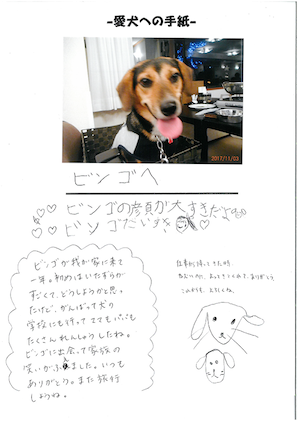 -愛犬への手紙-
2017/11/03
ビンゴへ
ビンゴの顔が大すきだよ
ビンゴだいすき
ビンゴが我が家に来て
一年。初めはいたずらが
すごくて、どうしようかと思っ
たけど、がんばって犬の
学校にも行って ててもパパも
たくさんれんしゅうしたね。
ビンゴに出会って家族の
笑いがふえました。いつも
ありがとう。また旅行
しようね。
仕事から帰ってきた時、
ありがとう。
これからも、よろしくね。